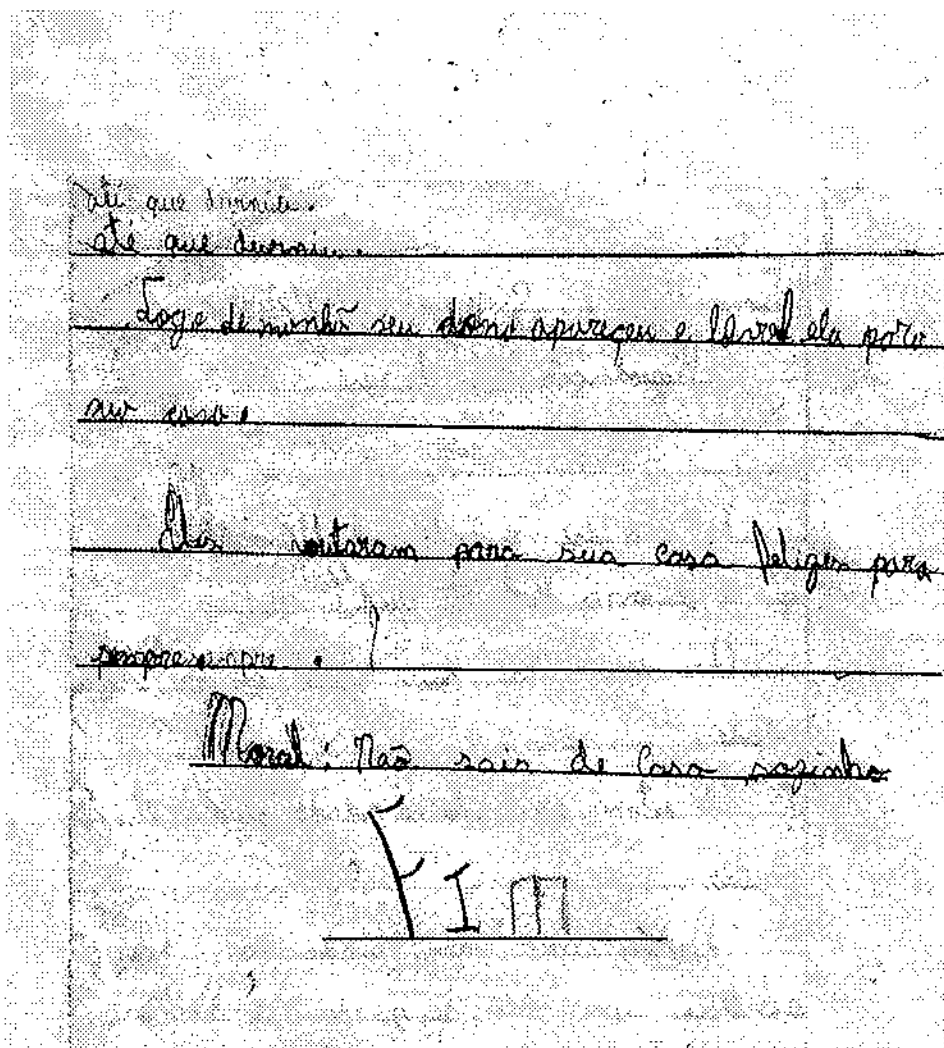 até que durmiu.
até que durmiu.
Loge de manhã seu dono apareçeu e level ela para
sua casa.
Eles voutaram para sua casa felizes para
sempre
Moral: Não saia de casa sozinho
FIM